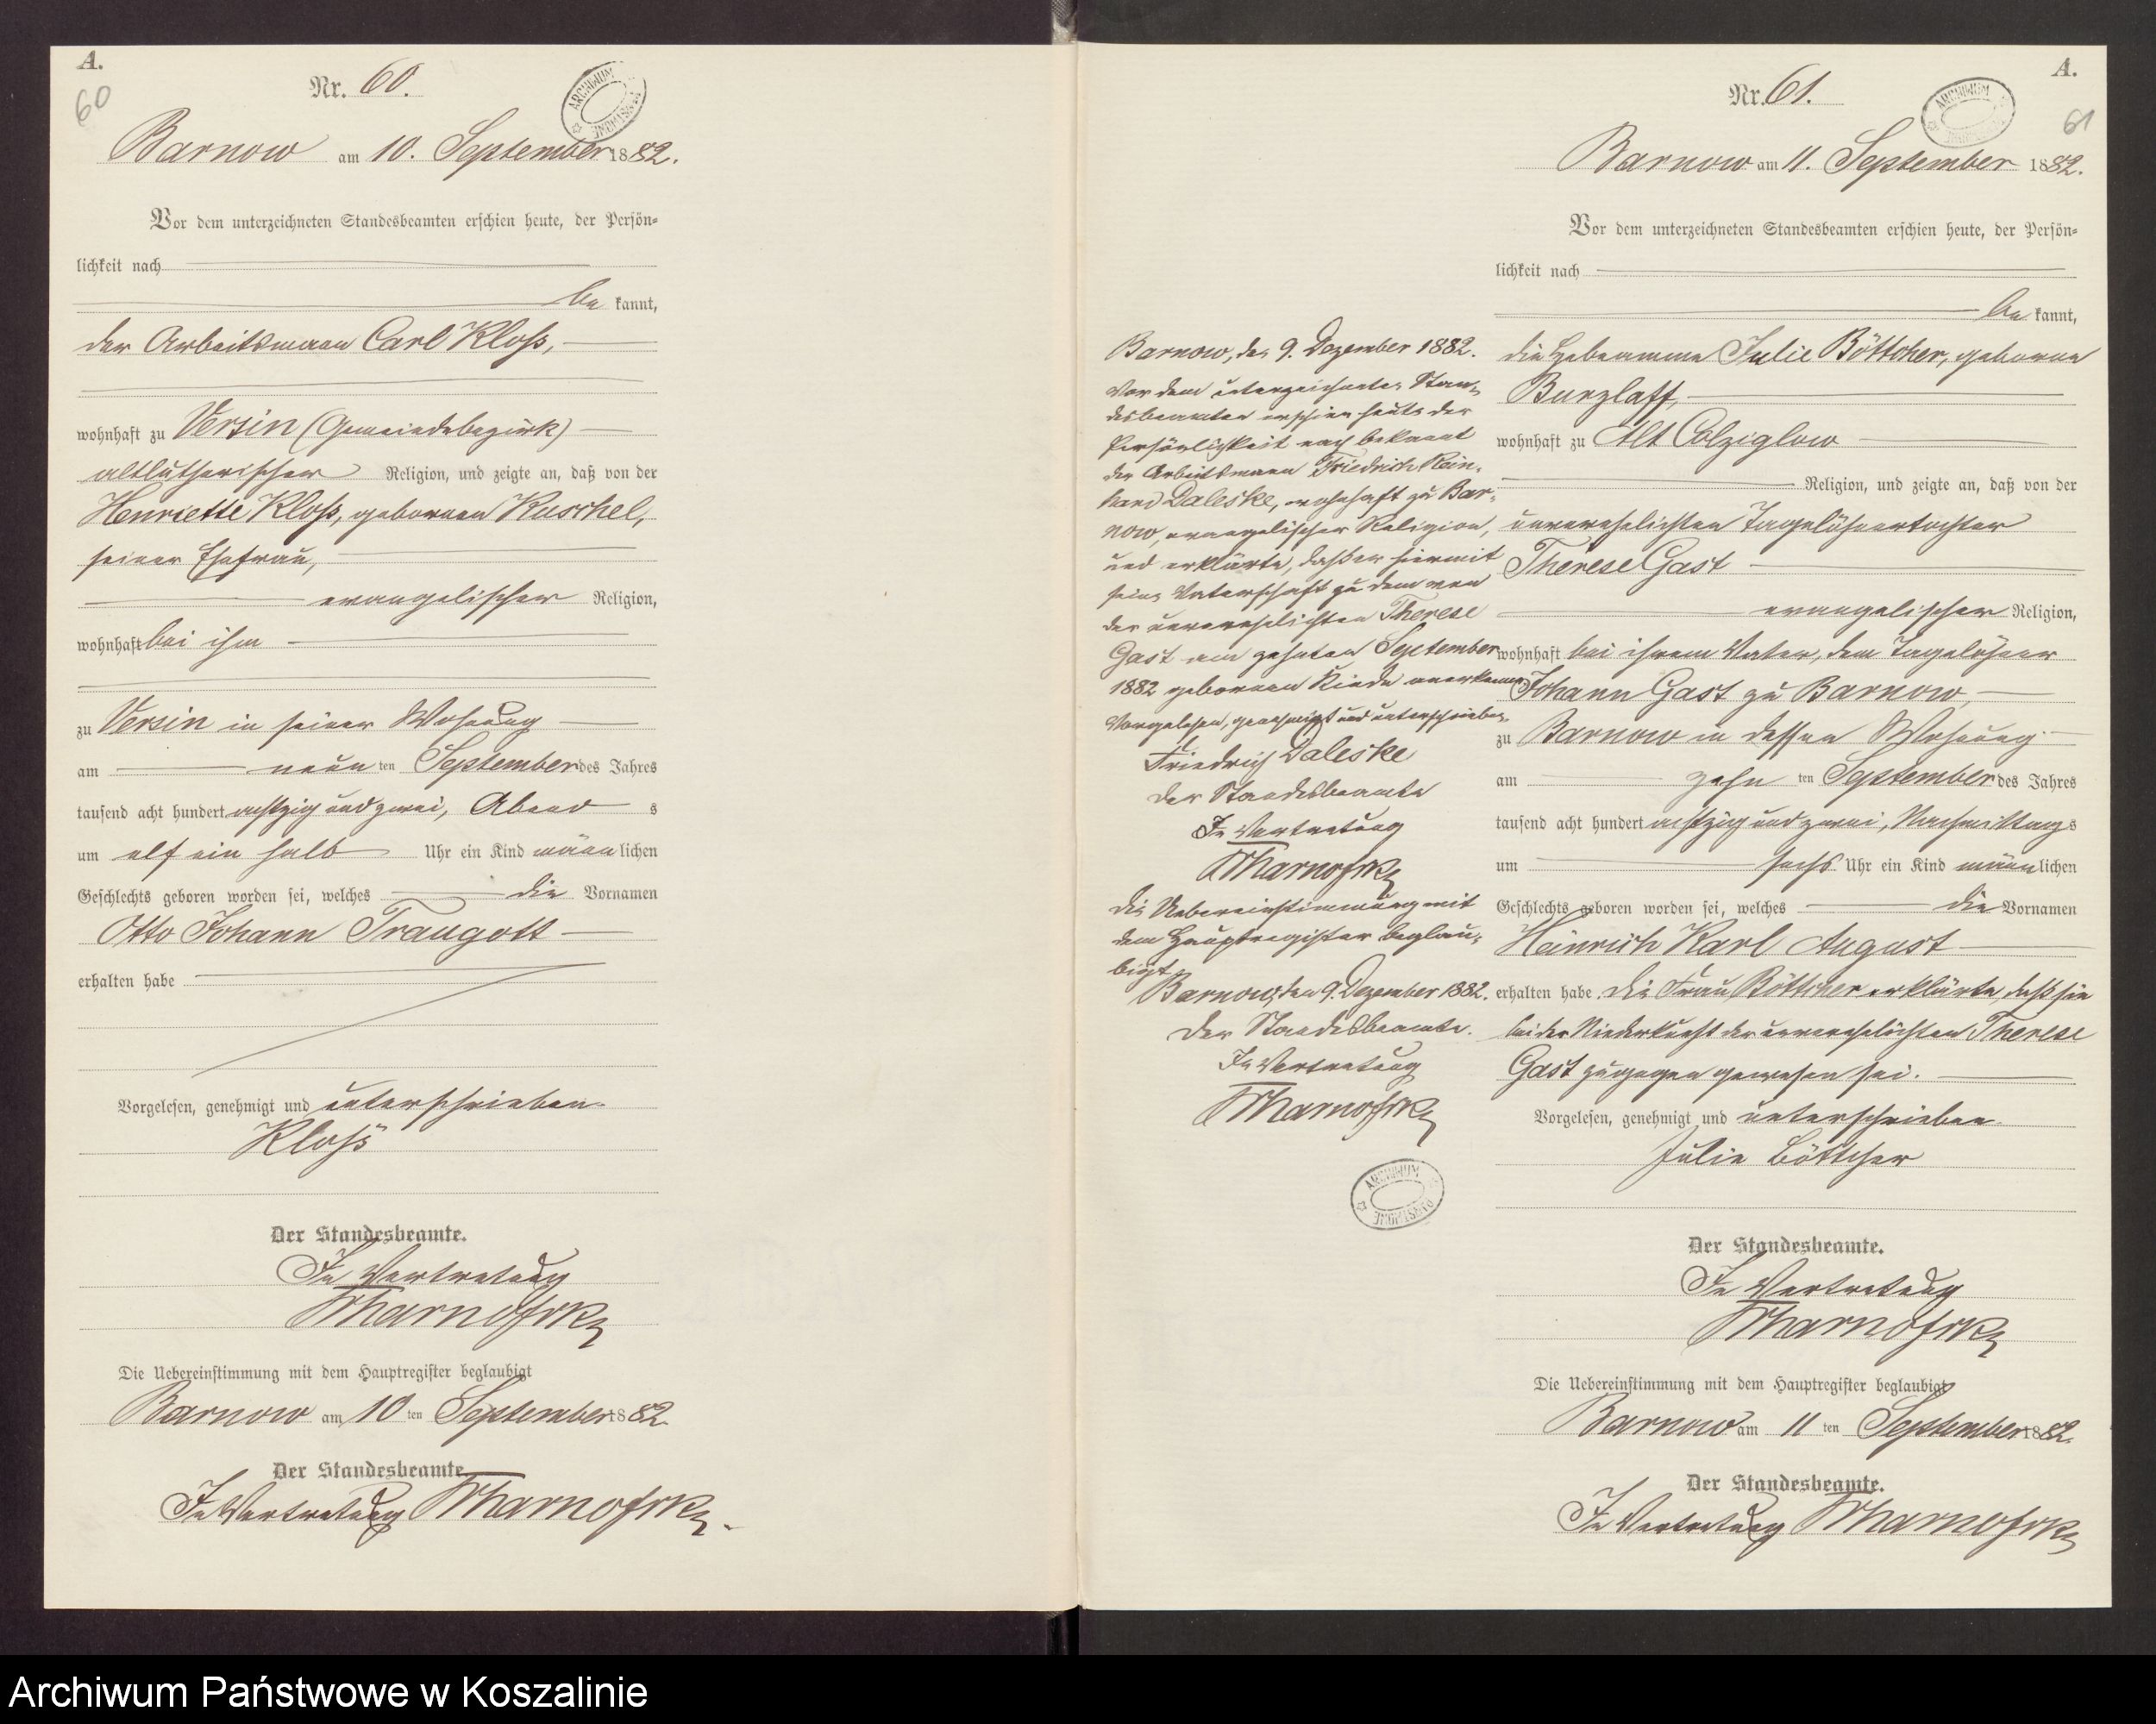 A.
60
Nr. 60.
ARCHIWUM PAŃSTWOWE
Barnow am 10. September 1882.
Vor dem unterzeichneten Standesbeamten erschien heute, der Persön-
lichkeit nach
be kannt,
der Arbeitsmann Carl Kloß,
wohnhaft zu Versin (Gemeindebezirk)
altlutherischer Religion, und zeigte an, daß von der
Henriette Kloß, gebornen Kuschel,
seiner Ehefrau,
evangelischer Religion,
wohnhaft bei ihm
zu Versin in seiner Wohnung
am neun ten September des Jahres
tausend acht hundert achtzig und zwei, Abend s
um elf ein halb Uhr ein Kind männlichen
Geschlechts geboren worden sei, welches die Vornamen
Otto Johann Traugott
erhalten habe
Vorgelesen, genehmigt und unterschrieben.
Kloß
Der Standesbeamte.
In Vertretung
Die Uebereinstimmung mit dem Hauptregister beglaubigt
Barnow am 10 ten September 1882.
Der Standesbeamte
In Vertretung
A.
61
Nr. 61.
ARCHIWUM
Barnow am 11. September 1882.
Vor dem unterzeichneten Standesbeamten erschien heute, der Persön-
lichkeit nach
be kannt,
die Hebeamme Julie Böttcher, geborne
Burzlaff,
wohnhaft zu Alt Colziglow
Religion, und zeigte an, daß von der
unverehelichten Tagelöhnertochter
Therese Gast
evangelischer Religion,
wohnhaft bei ihrem Vater, dem Tagelöhner
Johann Gast zu Barnow,
zu Barnow in dessen Wohnung
am zehn ten September des Jahres
tausend acht hundert achtzig und zwei, Nachmittags
um sechs Uhr ein Kind männlichen
Geschlechts geboren worden sei, welches die Vornamen
Heinrich Karl August
erhalten habe. Die Frau Böttcher erklärte, daß sie
bei der Niederkunft der unverehelichten Therese
Gast zugegen gewesen sei.
Vorgelesen, genehmigt und unterschrieben
Julie Böttcher
Der Standesbeamte.
In Vertretung
Die Uebereinstimmung mit dem Hauptregister beglaubigt
Barnow am 11 ten September 1882.
Der Standesbeamte.
In Vertretung
Barnow, den 9. Dezember 1882.
Vor dem unterzeichneten Stan-
desbeamten erschien heute der
Persönlichkeit nach bekannt
der Arbeitsmann Friedrich Rein-
hard Daleske, wohnhaft zu Bar-
now, evangelischer Religion,
und erklärte, daß er hiermit
seine Vaterschaft zu dem von
der unverehelichten Therese
Gast am zehnten September
1882 gebornen Kinde anerkenne.
Vorgelesen, genehmigt und unterschrieben.
Friedrich Daleske
Der Standesbeamte
In Vertretung
Die Uebereinstimmung mit
dem Hauptregister beglau-
bigt
Barnow, den 9. Dezember 1882.
Der Standesbeamte.
In Vertretung
ARCHIWUM PAŃSTWOWE
Archiwum Państwowe w Koszalinie